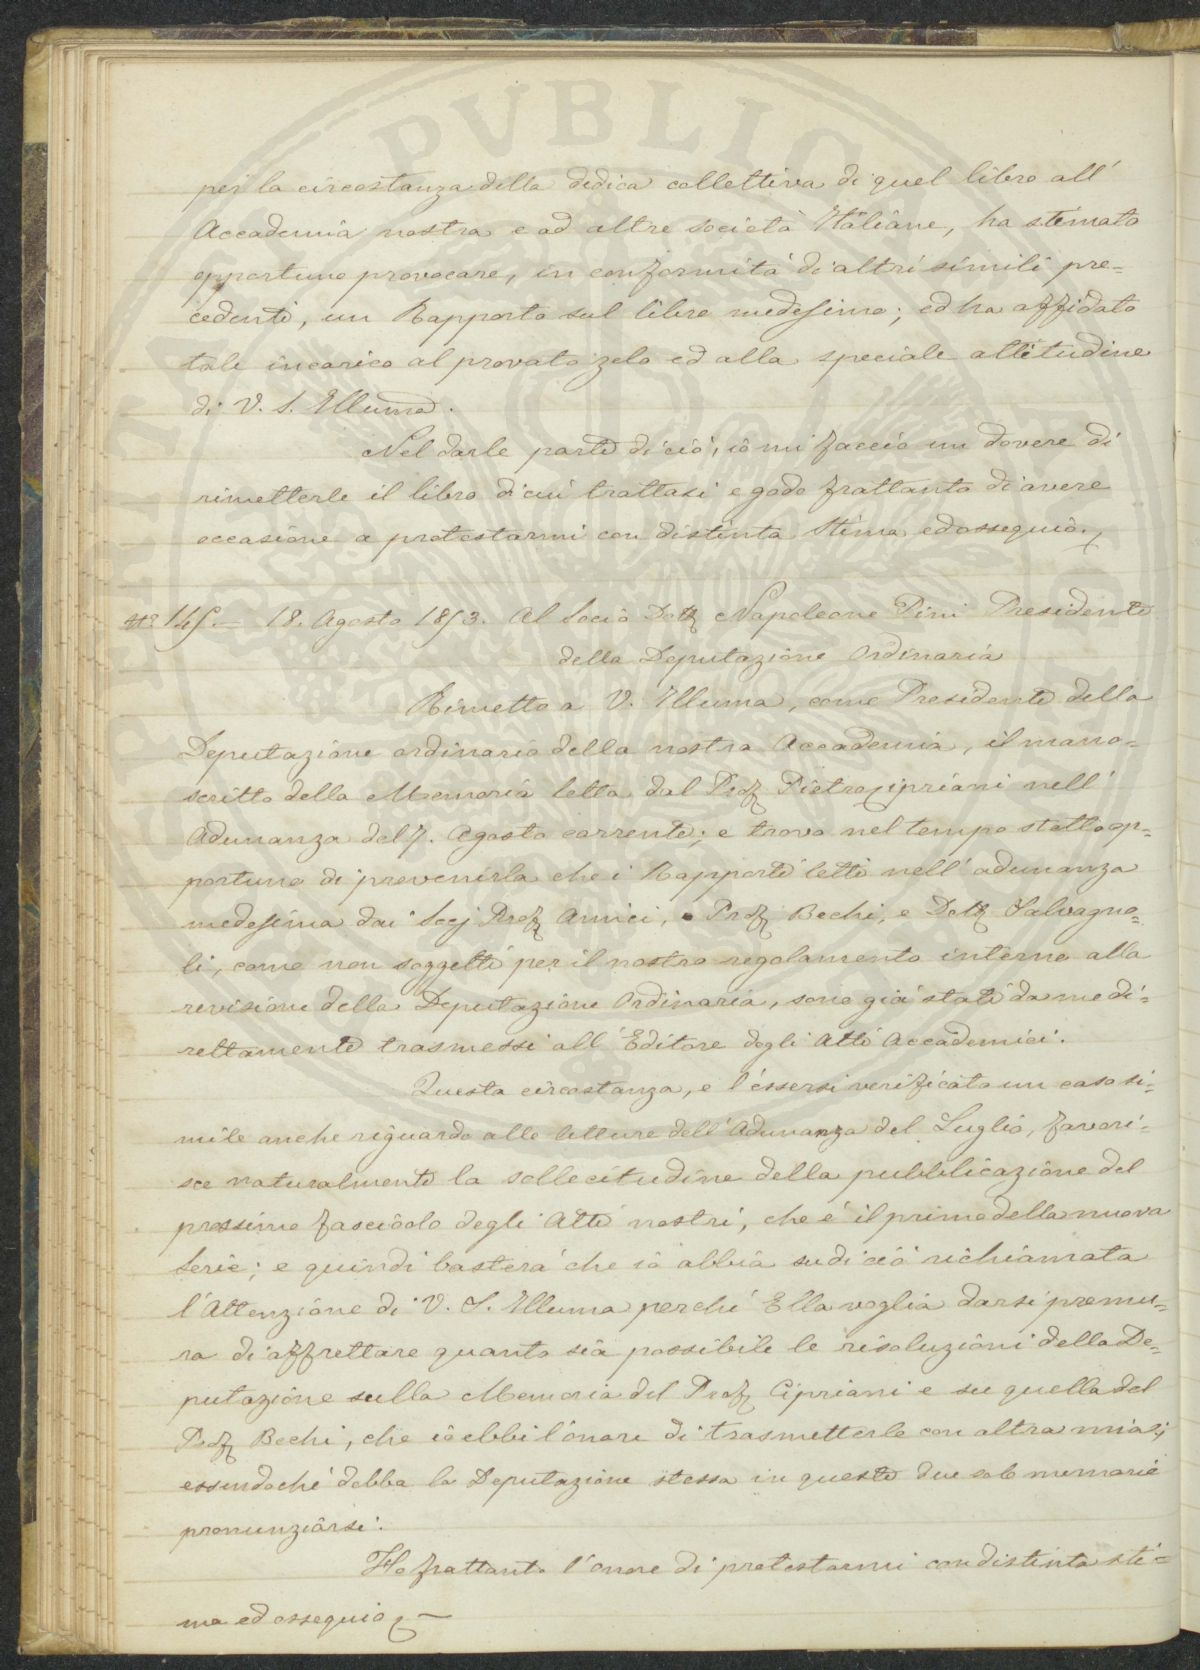 PVBLIC
per la circostanza della dedica collettiva di quel libro all'
Accademia nostra e ad altre società Italiane, ha stimato
opportuno provocare, in conformità di altri simili pre=
cedenti, un Rapporto sul libro medesimo; ed ha affidato
tale incarico al provato zelo ed alla speciale attitudine
di V. S. Illuma.
Nel darle parte di ciò, io mi faccio un dovere di
rimetterle il libro di cui trattasi e godo frattanto di avere
occasione a protestarmi con distinta stima ed ossequio.
N.º 145.— 18. Agosto 1853. Al Socio Dott Napoleone Pini Presidente
della Deputazione Ordinaria
Rimetto a V. Illuma, come Presidente della
Deputazione ordinaria della nostra Accademia, il mano=
scritto della Memoria letta dal Prof Pietro Cipriani nell'
Adunanza del 7. Agosto corrente; e trovo nel tempo stesso op=
portuno di prevenirla che i Rapporti letti nell'adunanza
medesima dai Socj Prof Amici, Prof Bechi, e Dott Salvagno=
li, come non soggetti per il nostro regolamento interno alla
revisione della Deputazione Ordinaria, sono già stati da me di=
rettamente trasmessi all'Editore degli Atti Accademici.
Questa circostanza, e l'essersi verificato un caso si=
mile anche riguardo alle letture dell'Adunanza del Luglio, favori=
sce naturalmente la sollecitudine della pubblicazione del
prossimo fascicolo degli Atti nostri, che è il primo della nuova
Serie; e quindi basterà che io abbia su di ciò richiamata
l'Attenzione di V. S. Illuma perchè Ella voglia darsi premu=
ra di affrettare quanto sia possibile le risoluzioni della De=
putazione sulla Memoria del Prof Cipriani e su quella del
Prof Bechi, che io ebbi l'onore di trasmetterle con altra mia;
essendochè debba la Deputazione stessa in queste due sole memorie
pronunziarsi.
Ho frattanto l'onore di protestarmi con distinta sti=
ma ed ossequio —